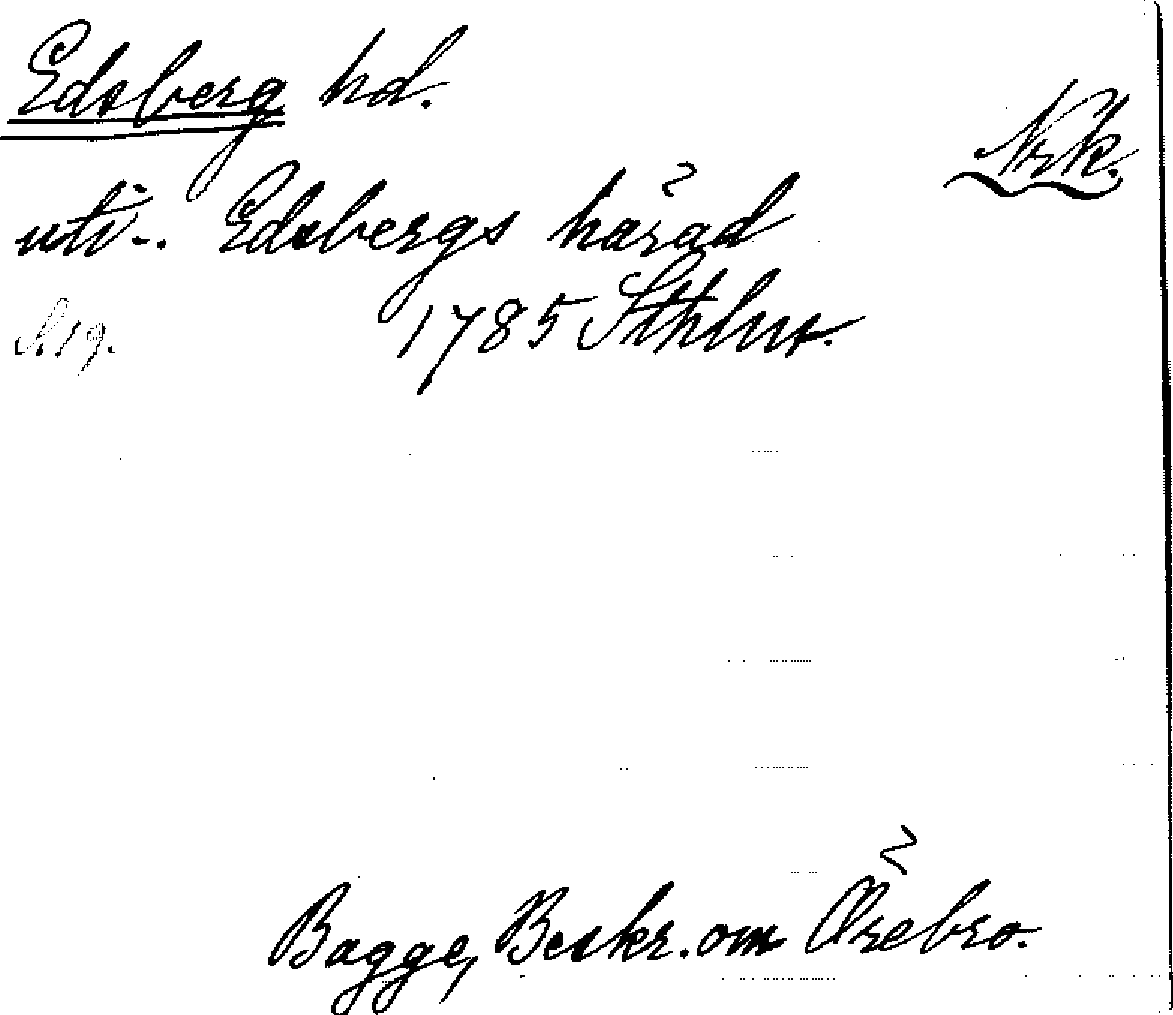 Edsberg hd.
Nrk.
uti.. Edsbergs härad
1785 Sthlm.
Bagge, Beskr. om Örebro.